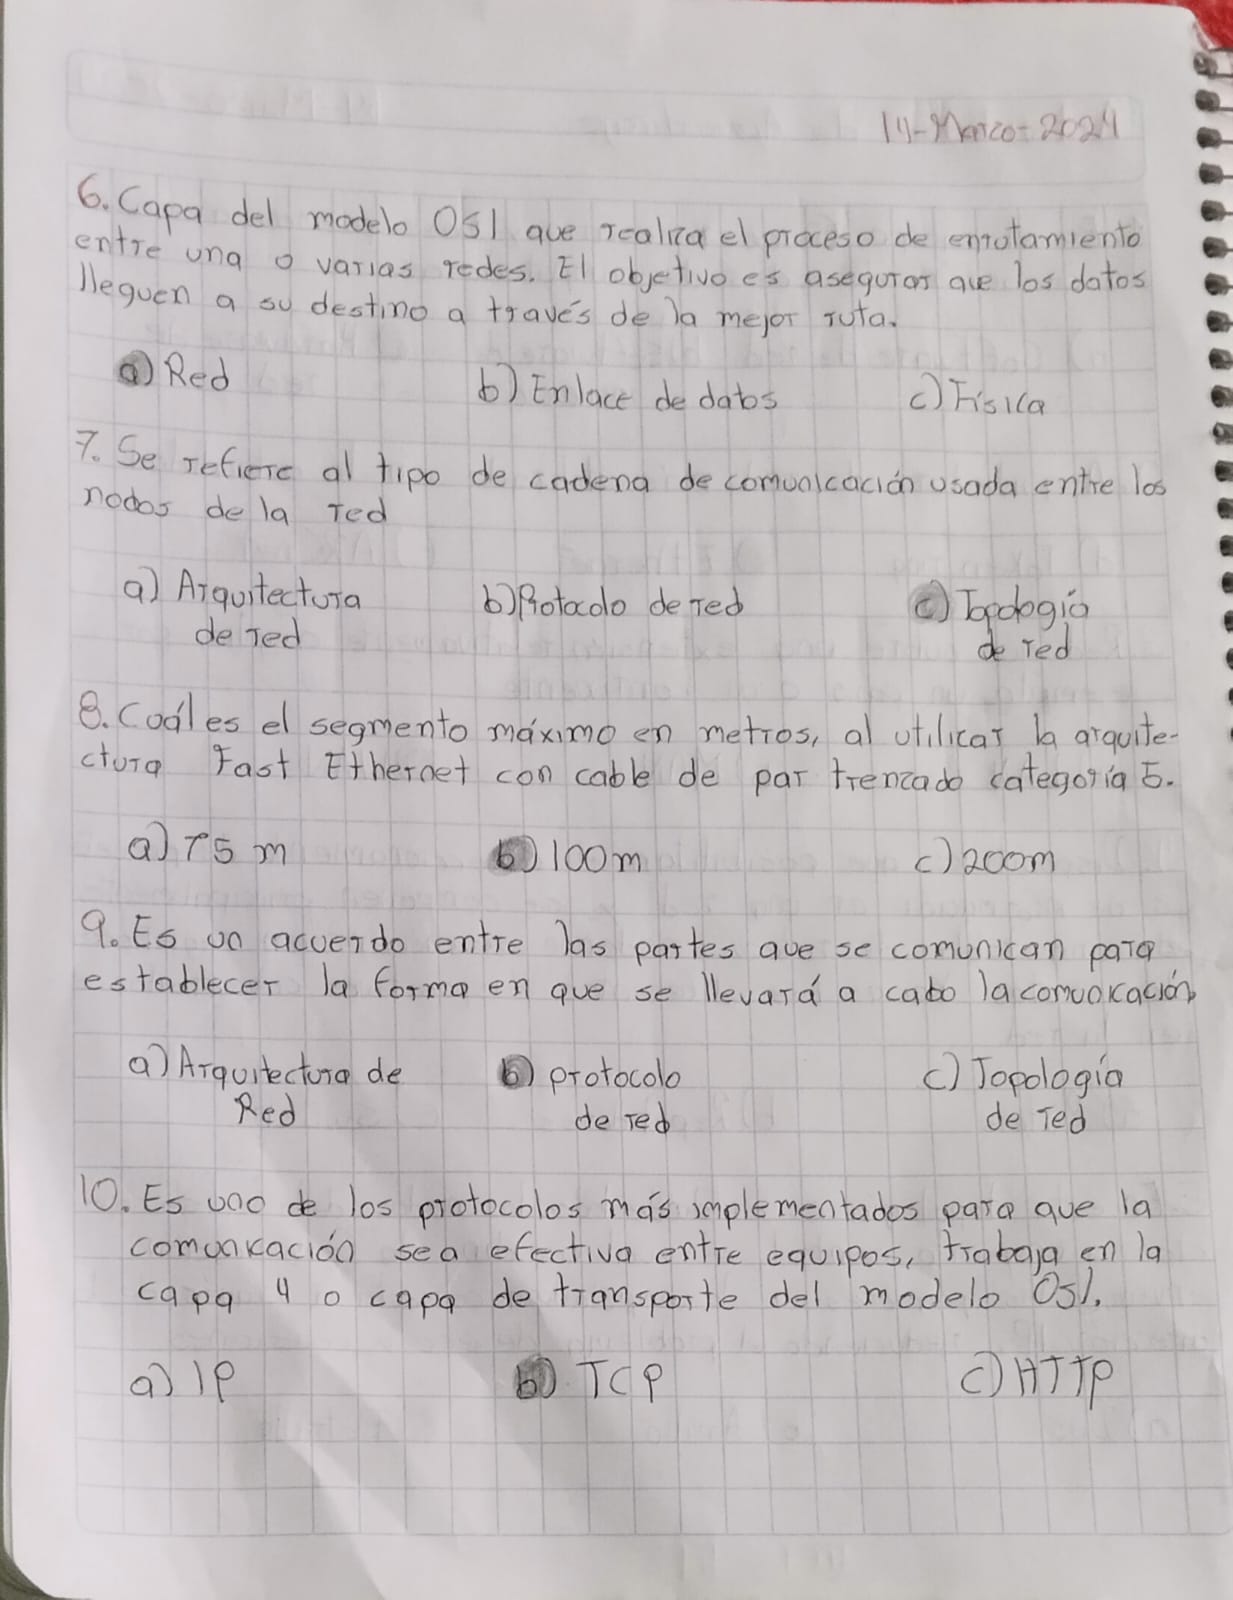 14-Marzo-2024
6. Capa del modelo OSI que realiza el proceso de enrutamiento
entre una o varias redes. El objetivo es asegurar que los datos
lleguen a su destino a través de la mejor ruta.
a) Red b) Enlace de datos c) Física
7. Se refiere al tipo de cadena de comunicación usada entre los
nodos de la red
a) Arquitectura b) Protocolo de red c) Topología
de red de red
8. Cuál es el segmento máximo en metros, al utilizar la arquite-
ctura Fast Ethernet con cable de par trenzado categoría 5.
a) 75 m b) 100m c) 200m
9. Es un acuerdo entre las partes que se comunican para
establecer la forma en que se llevará a cabo la comunicación
a) Arquitectura de b) protocolo c) Topología
Red de red de red
10. Es uno de los protocolos más implementados para que la
comunicación sea efectiva entre equipos, trabaja en la
capa 4 o capa de transporte del modelo OSI.
a) IP b) TCP c) HTTP